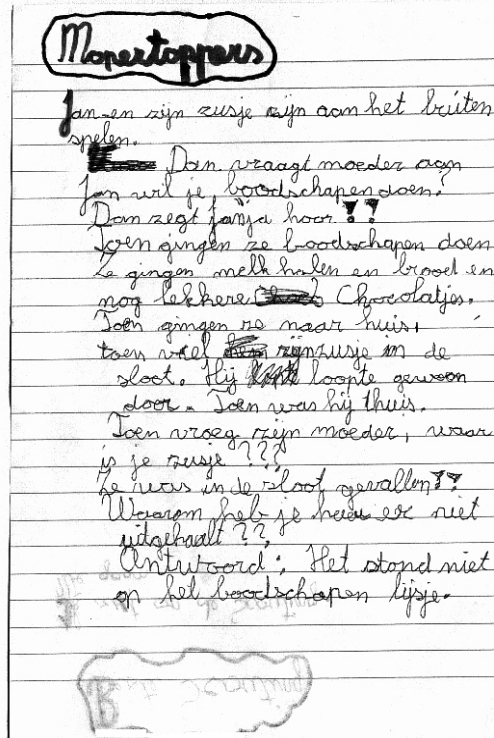 Mopertoppers
Jan en zijn zusje zijn aan het bruiten
spelen.
Dan vraagt moeder aan
Jan wil je boodschapen doen?
Dan zegt jan ja hoor!!
Toen gingen ze boodschapen doen
Ze gingen melk halen en brood en
nog lekkere Chocolatjes.
Toen gingen ze naar huis,
toen viel zijn zusje in de
sloot. Hij loopte gewoon
door. Toen was hij thuis.
Toen vroeg zijn moeder, waar
is je zusje???
Ze was in de sloot gevallen!!
Waarom heb je haar er niet
uitgehaalt??,
Antwoord: Het stond niet
op het boodschapen lijsje.